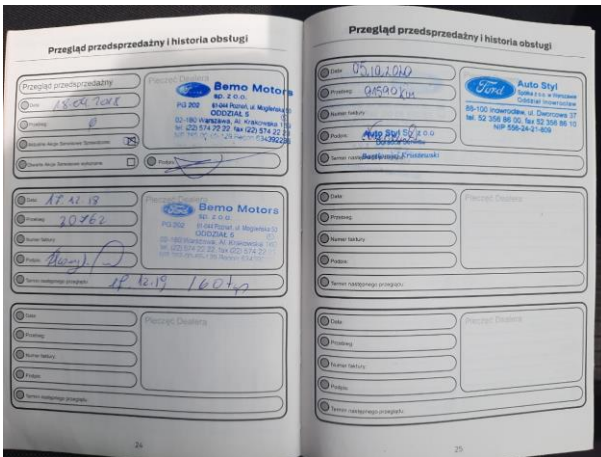 Przegląd przedsprzedażny i historia obsługi
Przegląd przedsprzedażny
Data: 18.04.2018
Przebieg: 0
Aktualne Akcje Serwisowe Sprawdzone
Otwarte Akcje Serwisowe wykonane
Pieczęć Dealera
Ford
Bemo Motors
sp. z o.o.
PG 202 61-044 Poznań, ul.
ODDZIAŁ 5
02-180 Warszawa, Al. Krakowska
tel. (22) 574 22 22, fax (22) 574 22
Podpis:
Data: 17.12.18
Przebieg: 20762
Numer faktury:
Podpis:
Termin następnego przeglądu:
Pieczęć Dealera
Ford
Bemo Motors
sp. z o.o.
PG 202 61-044 Poznań, ul.
ODDZIAŁ 5
02-180 Warszawa, Al. Krakowska
tel. (22) 574 22 22, fax (22) 574 22
12.19
Data:
Przebieg:
Numer faktury:
Podpis:
Termin następnego przeglądu:
Pieczęć Dealera
24
Przegląd przedsprzedażny i historia obsługi
Data: 05.10.2020
Przebieg: 91590 km
Numer faktury:
Podpis:
Termin następnego przeglądu:
Ford
Auto Styl
Spółka z o.o. w Warszawie
Oddział Inowrocław
88-100 Inowrocław, ul. Dworcowa 37
tel. 52 356 86 00, fax 52 356 86 10
NIP 556-24-21-809
Auto Styl Sp. z o.o.
Doradca Serwisu
Kruszewski
Data:
Przebieg:
Numer faktury:
Podpis:
Termin następnego przeglądu:
Pieczęć Dealera
Data:
Przebieg:
Numer faktury:
Podpis:
Termin następnego przeglądu:
Pieczęć Dealera
25